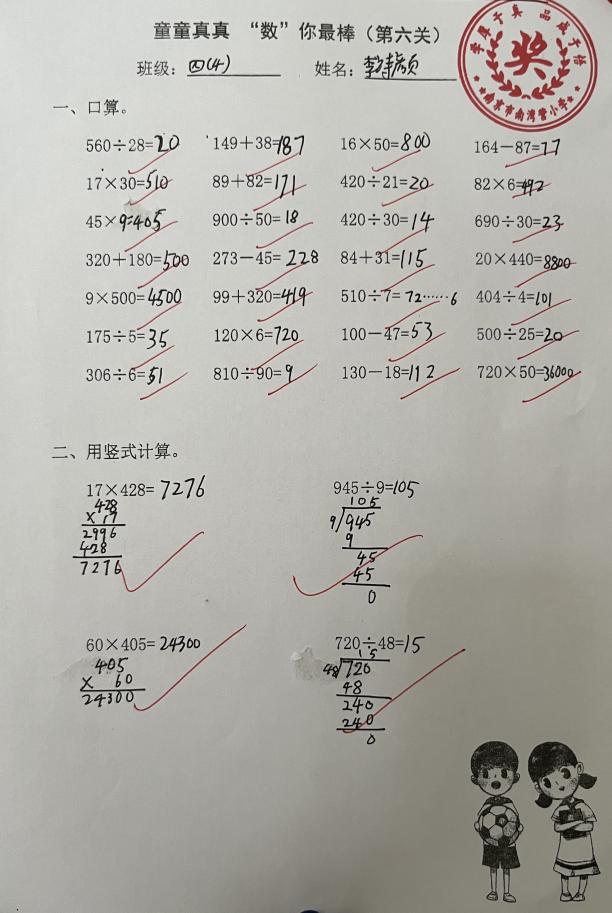 童童真真 “数”你最棒（第六关）
班级：四(4) 姓名：李
学厚于真 品成于悟
奖
南京市南湾营小学
一、口算。
560÷28=20 149+38=187 16×50=800 164-87=77
17×30=510 89+82=171 420÷21=20 82×6=492
45×9=405 900÷50=18 420÷30=14 690÷30=23
320+180=500 273-45=228 84+31=115 20×440=8800
9×500=4500 99+320=419 510÷7=72……6 404÷4=101
175÷5=35 120×6=720 100-47=53 500÷25=20
306÷6=51 810÷90=9 130-18=112 720×50=36000
二、用竖式计算。
17×428=7276 945÷9=105
428
×17
2996
428
7276
105
9 945
9
45
45
0
60×405=24300 720÷48=15
405
× 60
24300
15
48 720
48
240
240
0